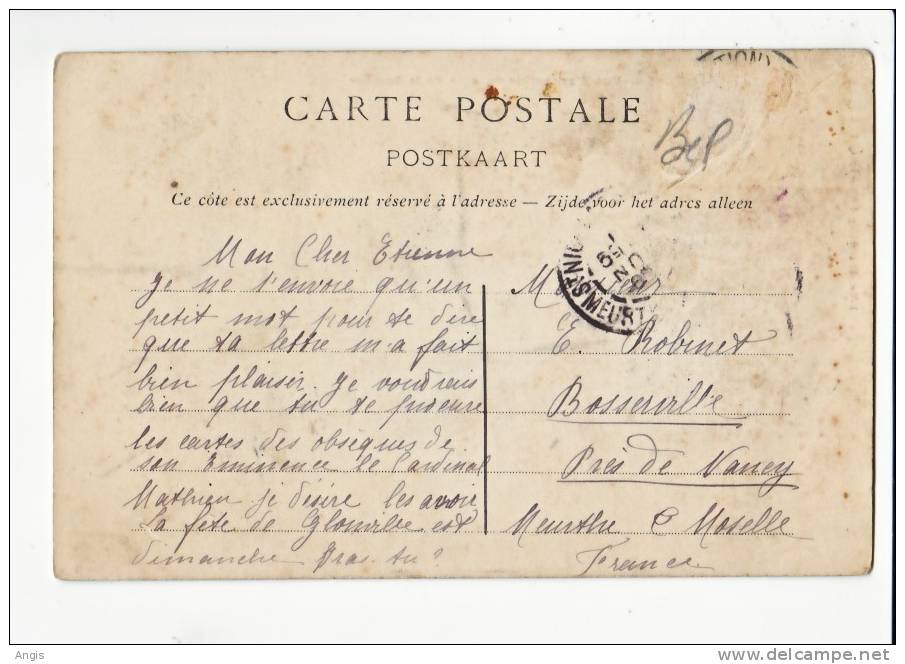 CARTE POSTALE
Bel
POSTKAART
Ce côte est exclusivement réservé à l'adresse — Zijde voor het adres alleen
Mon Cher Etienne
Je ne t'envoie qu'un
petit mot pour te dire
que ta lettre m'a fait
bien plaisir. Je voudrais
bien que tu te procure
les cartes des obseques de
son Eminence le Cardinal
Mathieu je désire les avoir
La fête de Glonville est
dimanche iras-tu?
E. Robinet
Bosserville
Près de Nancy
Meurthe & Moselle
France
Angis
delcampe.net